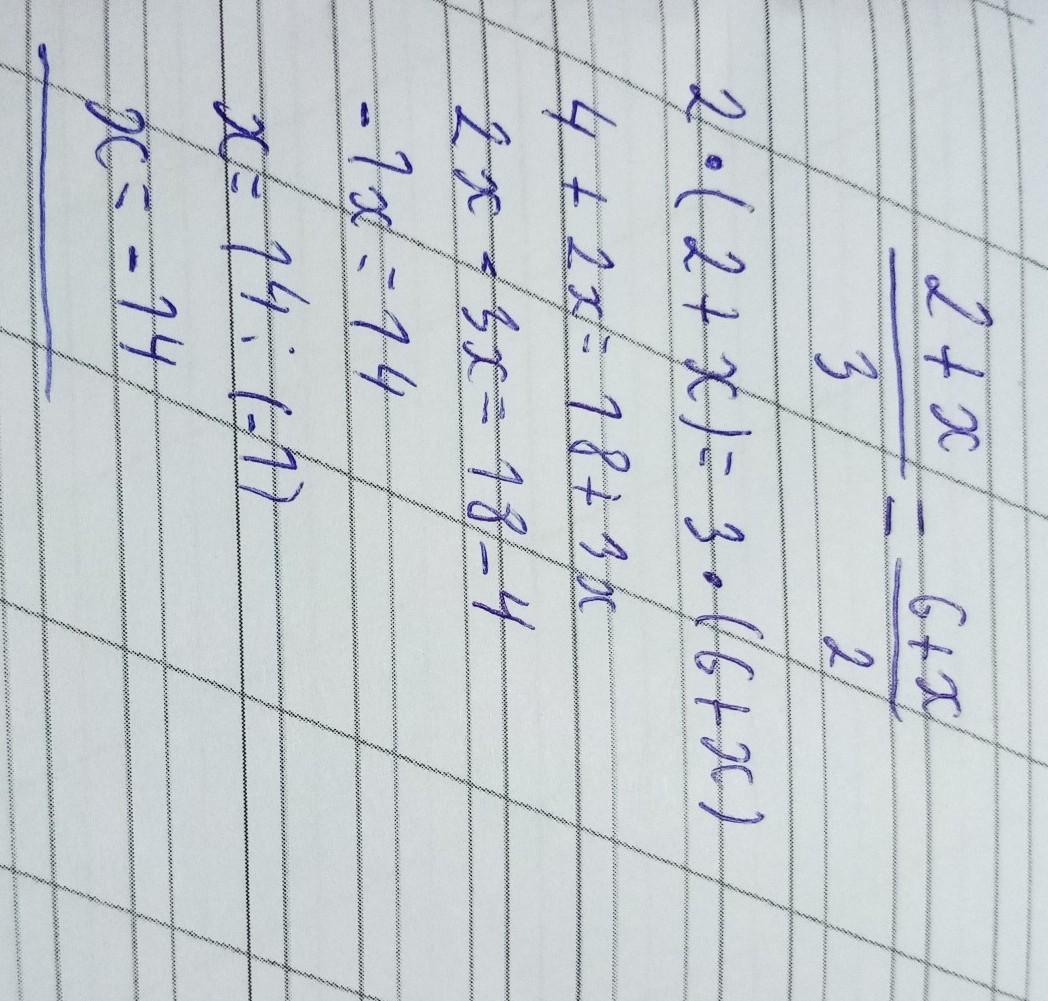 2+x/3 = 6+x/2
2·(2+x)=3·(6+x)
4+2x=18+3x
2x-3x=18-4
-1x=14
x=14:(-1)
x=-14